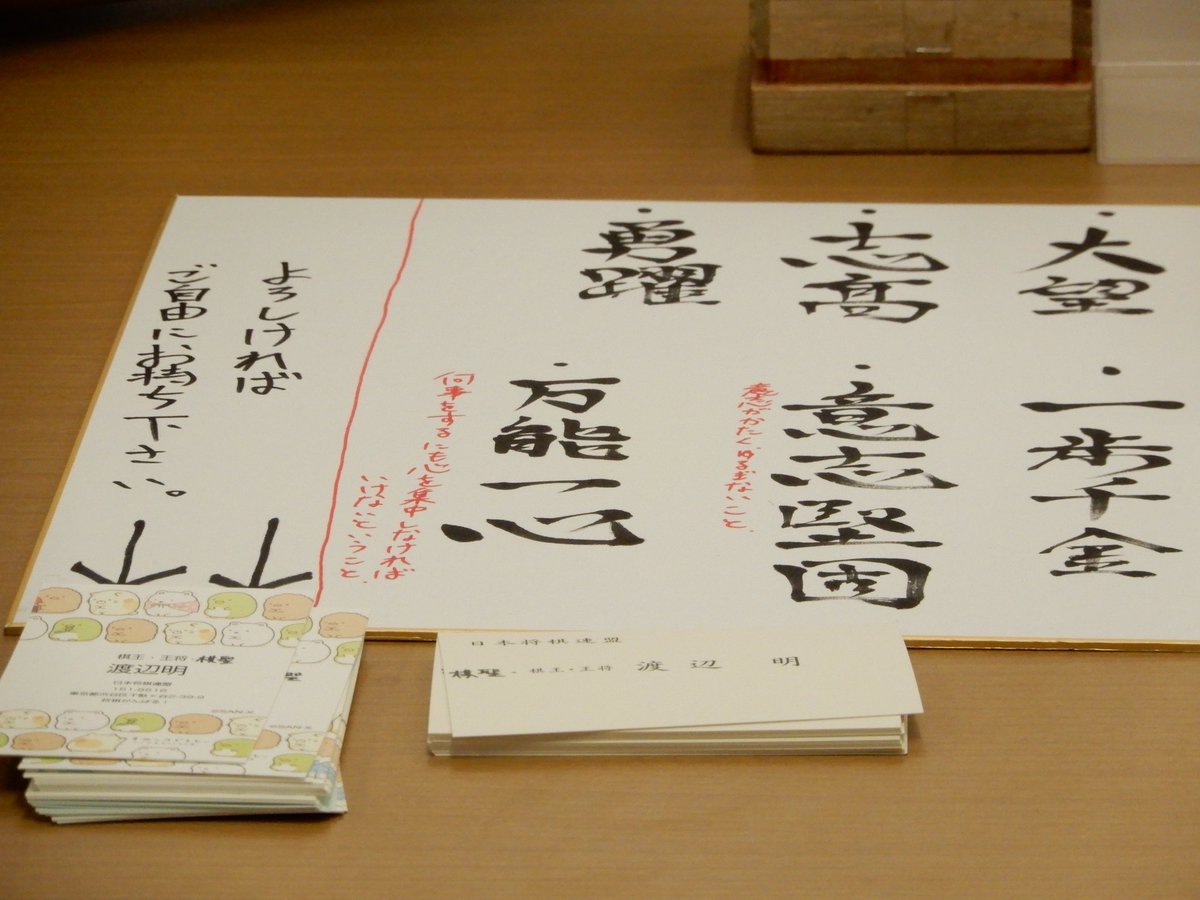 ・大望
・志高
・勇躍
・一歩千金
・意志堅固
意志がかたくゆるぎないこと.
・万能一心
何事をするにも心を集中しなければ
いけないということ.
よろしければ
ご自由にお持ち下さい。
棋王・王将・棋聖
渡辺明
日本将棋連盟
151-8516
東京都渋谷区千駄ヶ谷2-39-9
将棋がんばる!
©SAN-X
日本将棋連盟
棋聖・棋王・王将 渡辺 明